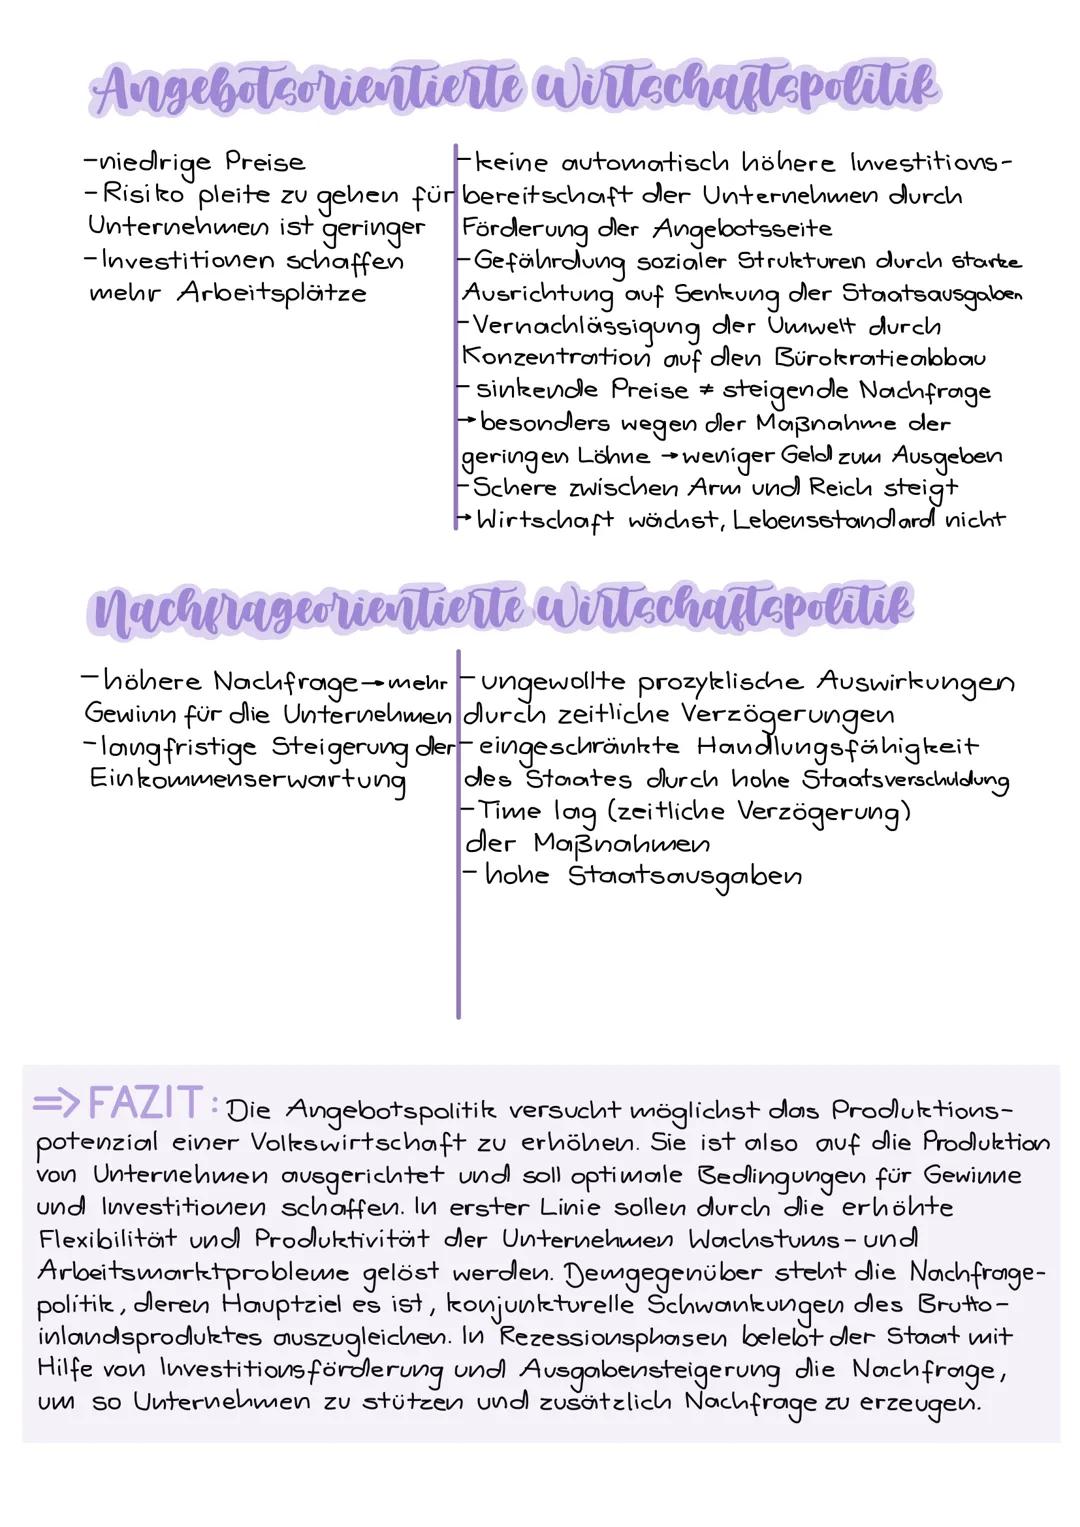 Angebotsorientierte Wirtschaftspolitik
-niedrige Preise
-Risiko pleite zu gehen für
Unternehmen ist geringer
-Investitionen schaffen
mehr Arbeitsplätze
-keine automatisch höhere Investitions-
bereitschaft der Unternehmen durch
Förderung der Angebotsseite
-Gefährdung sozialer Strukturen durch starke
Ausrichtung auf Senkung der Staatsausgaben
-Vernachlässigung der Umwelt durch
Konzentration auf den Bürokratieabbau
- sinkende Preise ≠ steigende Nachfrage
→ besonders wegen der Maßnahme der
geringen Löhne → weniger Geld zum Ausgeben
-Schere zwischen Arm und Reich steigt
→ Wirtschaft wächst, Lebensstandard nicht
Nachfrageorientierte Wirtschaftspolitik
-höhere Nachfrage → mehr
Gewinn für die Unternehmen
-langfristige Steigerung der
Einkommenserwartung
-ungewollte prozyklische Auswirkungen
durch zeitliche Verzögerungen
- eingeschränkte Handlungsfähigkeit
des Staates durch hohe Staatsverschuldung
-Time lag (zeitliche Verzögerung)
der Maßnahmen
- hohe Staatsausgaben
=> FAZIT: Die Angebotspolitik versucht möglichst das Produktions-
potenzial einer Volkswirtschaft zu erhöhen. Sie ist also auf die Produktion
von Unternehmen ausgerichtet und soll optimale Bedingungen für Gewinne
und Investitionen schaffen. In erster Linie sollen durch die erhöhte
Flexibilität und Produktivität der Unternehmen Wachstums- und
Arbeitsmarktprobleme gelöst werden. Demgegenüber steht die Nachfrage-
politik, deren Hauptziel es ist, konjunkturelle Schwankungen des Brutto-
inlandsproduktes auszugleichen. In Rezessionsphasen belebt der Staat mit
Hilfe von Investitionsförderung und Ausgabensteigerung die Nachfrage,
um so Unternehmen zu stützen und zusätzlich Nachfrage zu erzeugen.